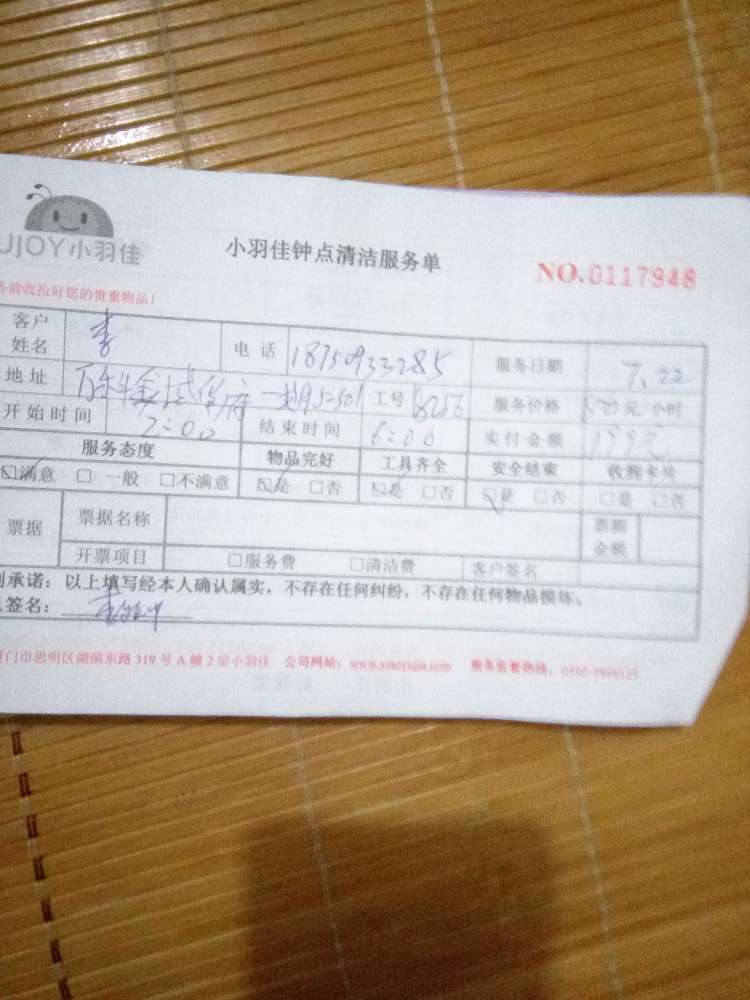 UJOY小羽佳
小羽佳钟点清洁服务单
NO.0117948
务前收拾好您的贵重物品!
客户姓名 李 电话 18750933285 服务日期 7.22
地址 一期 工号 服务价格 元/小时
开始时间 2:00 结束时间 6:00 实付金额 199元
服务态度 物品完好 工具齐全 安全结束 收到卡片
☑满意 □一般 □不满意 ☑是 □否 ☑是 □否 ☑是 □否 □是 □否
票据 票据名称 票据金额
开票项目 □服务费 □清洁费 客户签名
承诺:以上填写经本人确认属实,不存在任何纠纷,不存在任何物品损坏。
签名:
门市思明区湖滨东路319号A幢2层小羽佳 公司网站:www.xiaoyujia.com 服务监督热线: